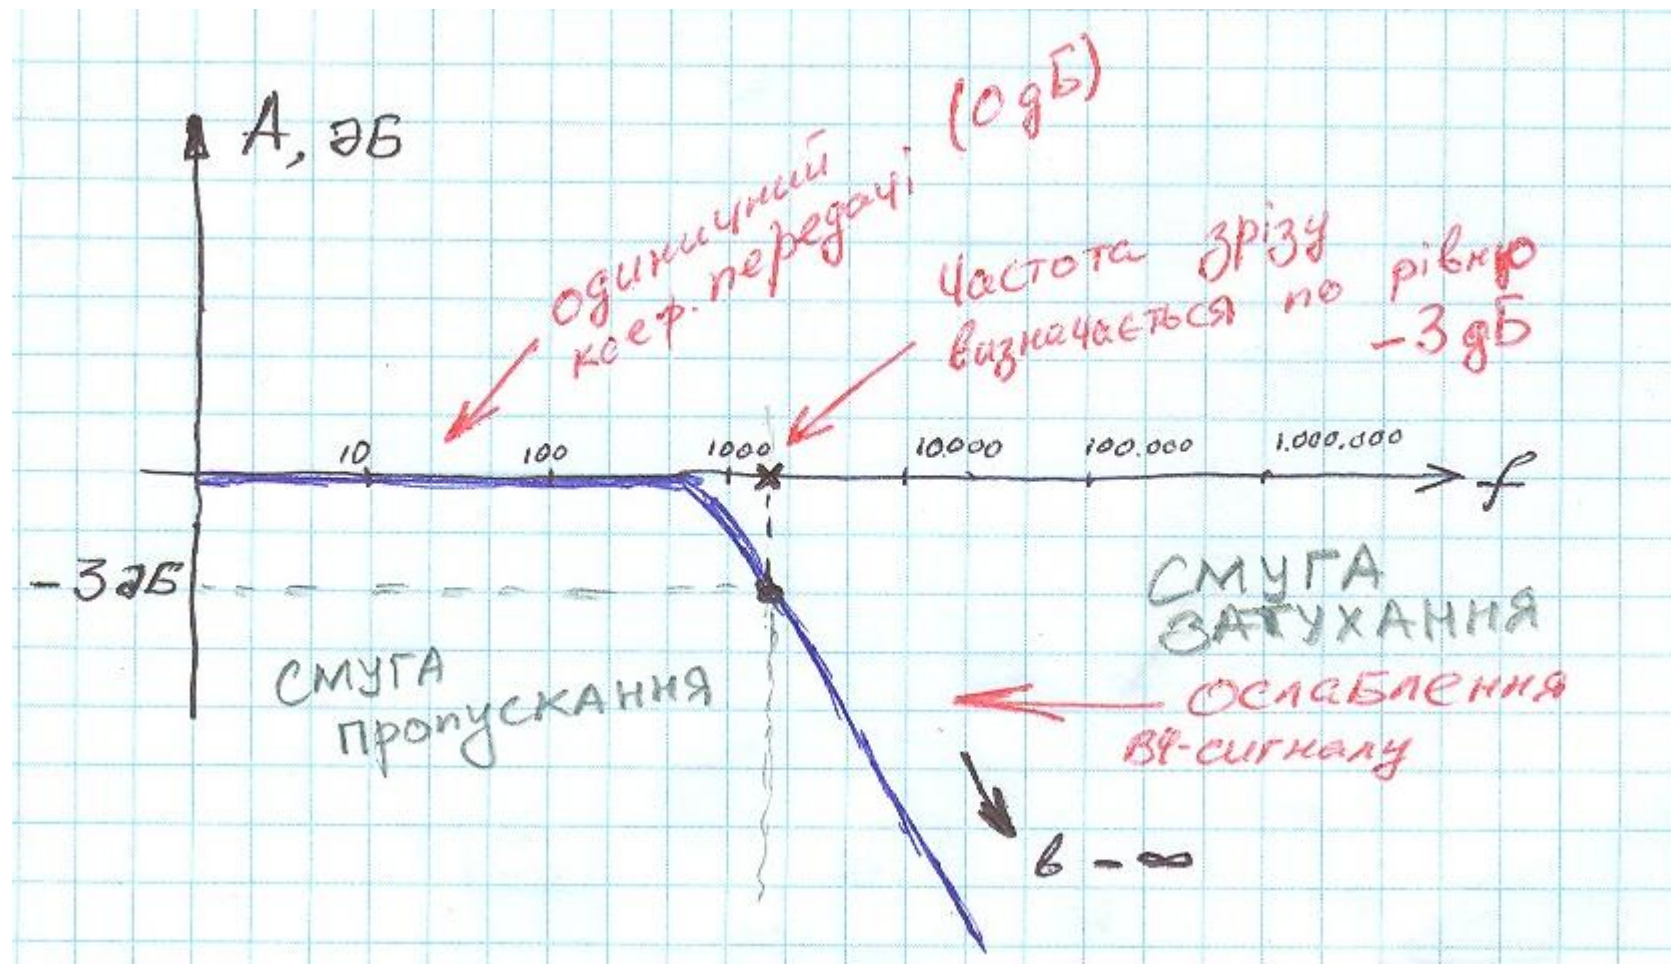 А, дБ
(0 дБ)
одиничний
коеф. передачі
Частота зрізу
визначається по рівню
-3 дБ
10
100
1000
10.000
100.000
1.000.000
f
-3 дБ
СМУГА
ЗАТУХАННЯ
СМУГА
ПРОПУСКАННЯ
ОСЛАБЛЕННЯ
ВЧ-сигналу
в - ∞